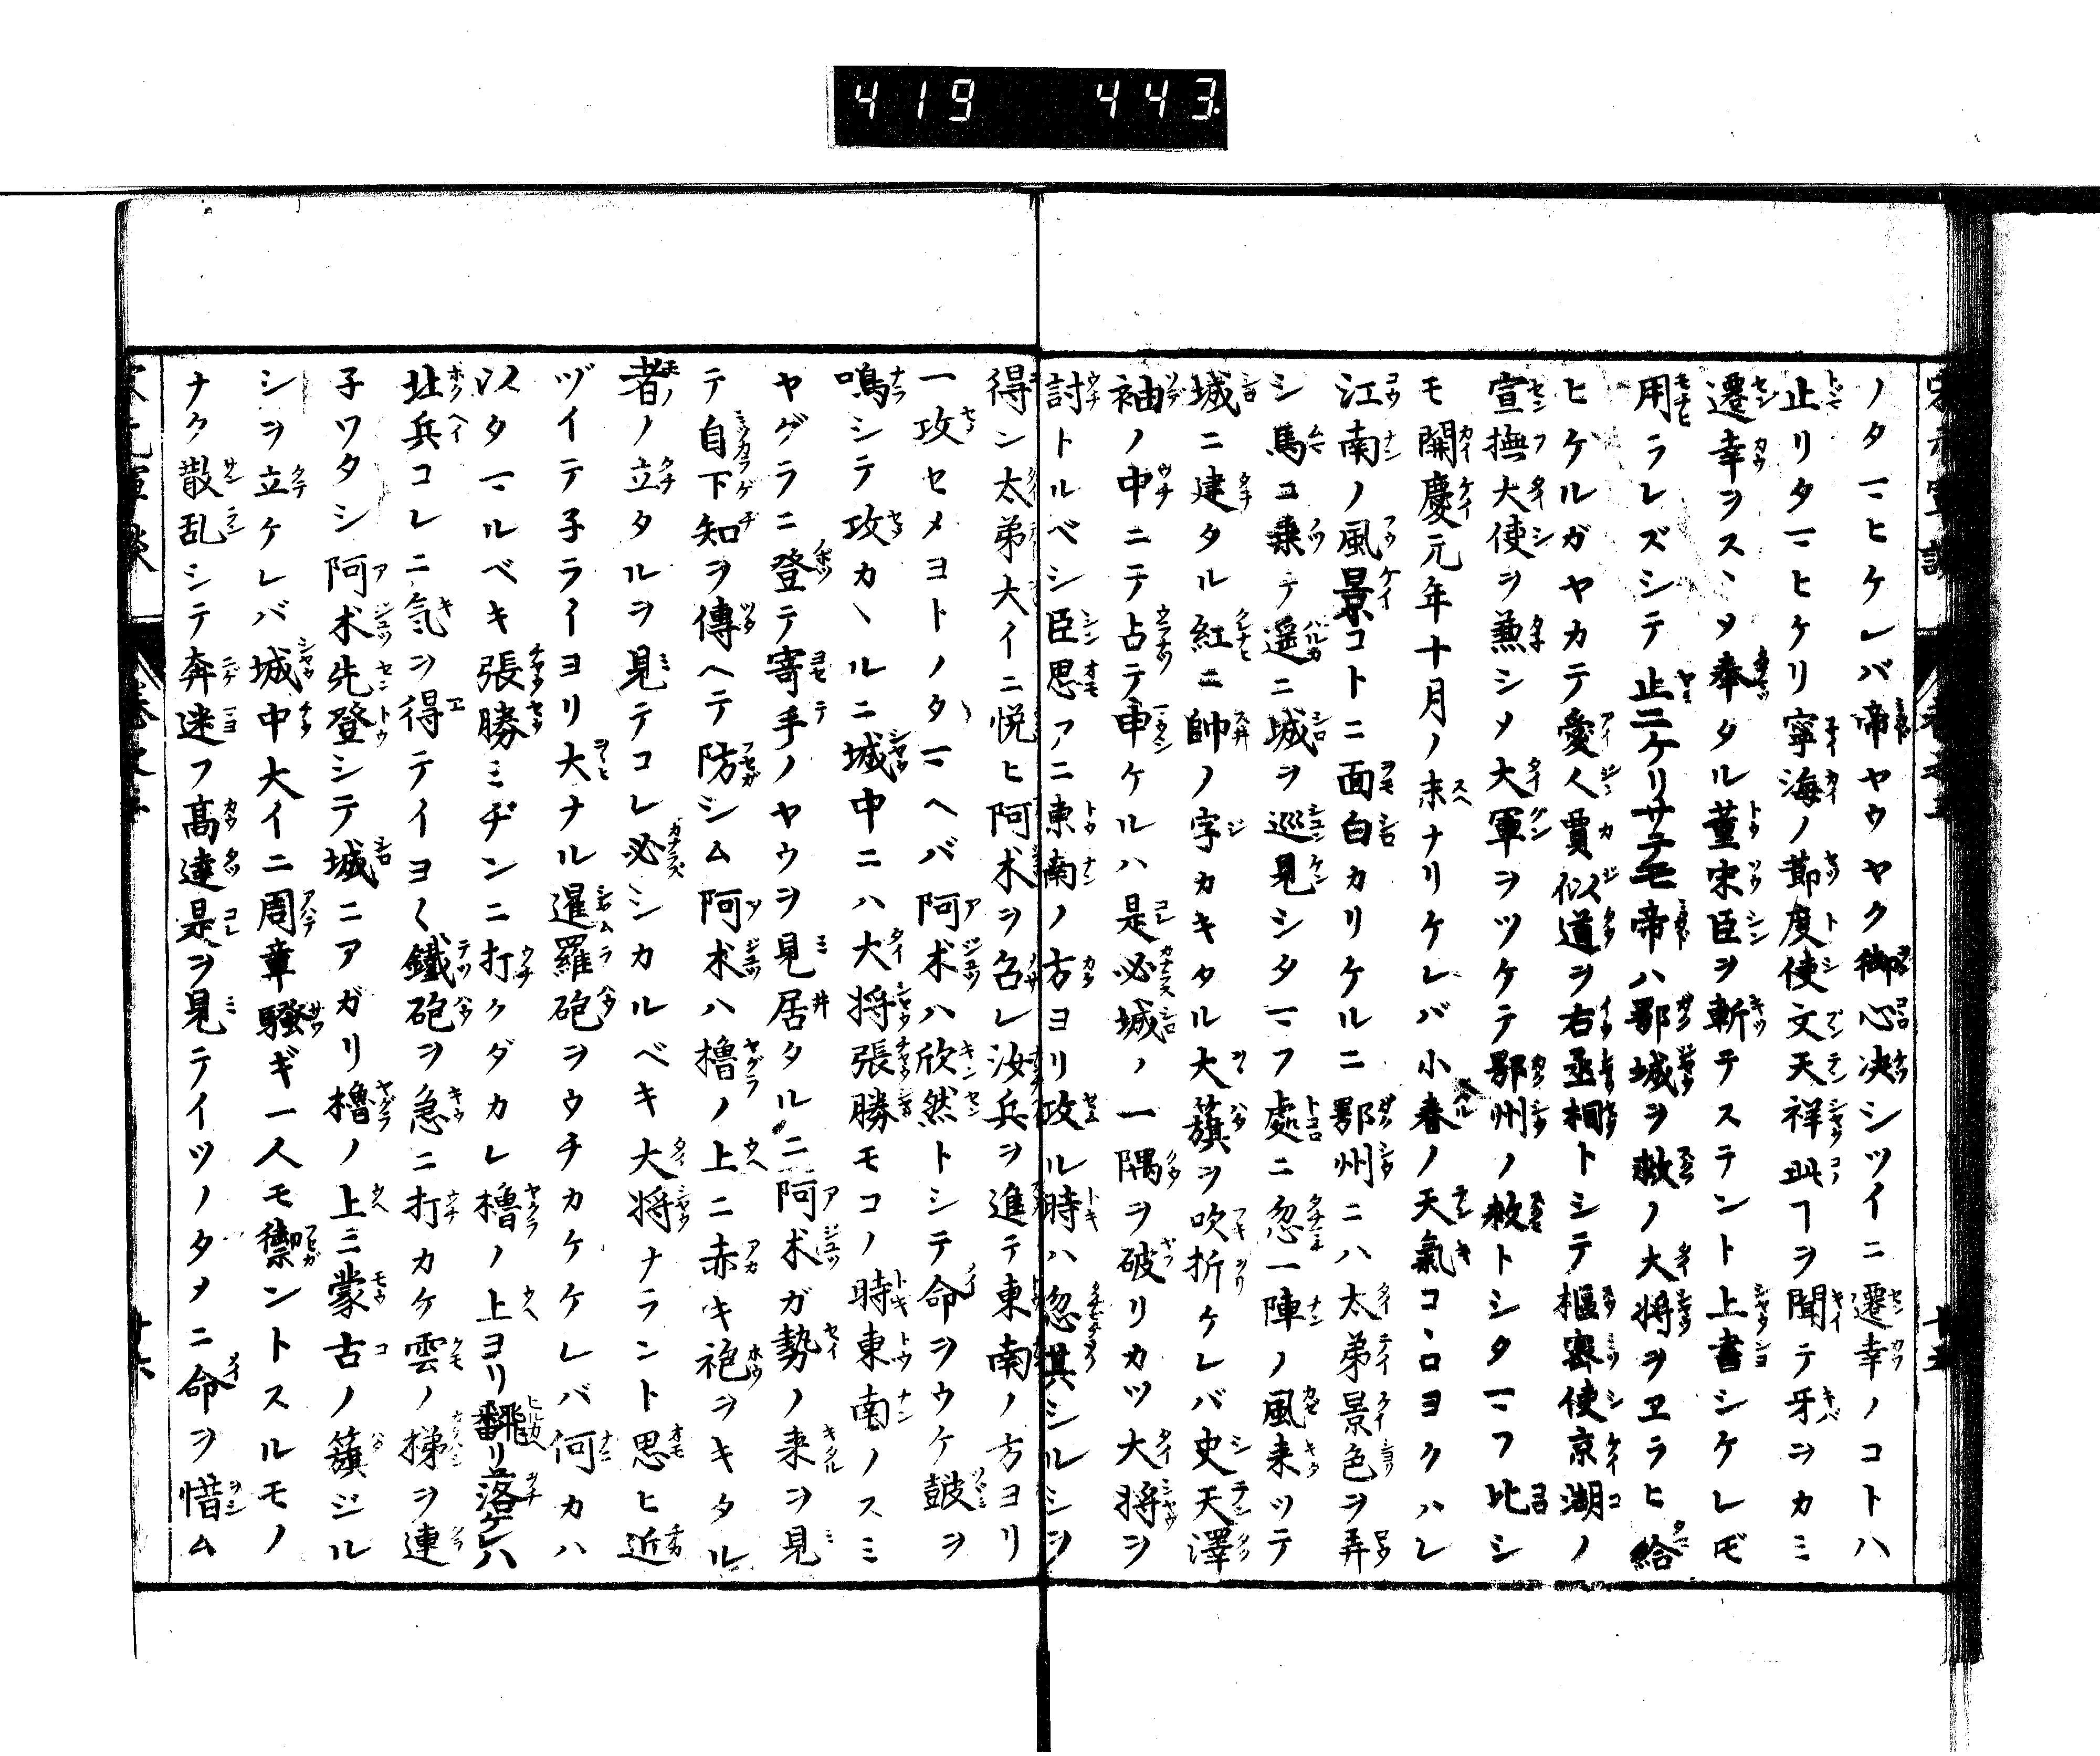 419 443
ノタマヒケレバ帝ヤウヤク御心决シツイニ遷幸ノコトハ
止リタマヒケリ寧海ノ節度使文天祥此ヿヲ聞テ牙ヲカミ
遷幸ヲスヽメ奉タル董宋臣ヲ斬テステント上書シケレ𪜈
用ラレズシテ止ニケリサテモ帝ハ鄂城ヲ救ノ大将ヲヱラヒ給
ヒケルガヤカテ愛人賈似道ヲ右丞相トシテ樞密使京湖ノ
宣撫大使ヲ兼シメ大軍ヲツケテ鄂州ノ救トシタマフ比シ
モ開慶元年十月ノ末ナリケレバ小春ノ天氣コヽロヨクハレ
江南ノ風景コトニ面白カリケルニ鄂州ニハ太弟景色ヲ弄
シ馬ニ乗テ遥ニ城ヲ巡見シタマフ處ニ忽一陣ノ風来ツテ
城ニ建タル紅ニ帥ノ字カキタル大籏ヲ吹折ケレバ史天澤
袖ノ中ニテ占テ申ケルハ是必城ノ一隅ヲ破リカツ大将ヲ
討トルベシ臣思フニ東南ノ方ヨリ攻ル時ハ忽其シルシヲ
得ン太弟大イニ悦ヒ阿术ヲ召レ汝兵ヲ進テ東南ノ方ヨリ
一攻セメヨトノタマヘバ阿术ハ欣然トシテ命ヲウケ皷ヲ
鳴シテ攻カヽルニ城中ニハ大将張勝モコノ時東南ノスミ
ヤグラニ登テ寄手ノヤウヲ見居タルニ阿术ガ勢ノ来ヲ見
テ自下知ヲ傳ヘテ防シム阿术ハ櫓ノ上ニ赤キ袍ヲキタル
者ノ立タルヲ見テコレ必シカルベキ大将ナラント思ヒ近
ヅイテ子ライヨリ大ナル暹羅砲ヲウチカケケレバ何カハ
以タマルベキ張勝ミヂンニ打クダカレ櫓ノ上ヨリ翻リ落ケレハ
北兵コレニ気ヲ得テイヨ〱鐵砲ヲ急ニ打カケ雲ノ梯ヲ連
子ワタシ阿术先登シテ城ニアガリ櫓ノ上ニ蒙古ノ籏ジル
シヲ立ケレバ城中大イニ周章騒ギ一人モ禦ントスルモノ
ナク散乱シテ奔迷フ高達是ヲ見テイツノタメニ命ヲ惜ム